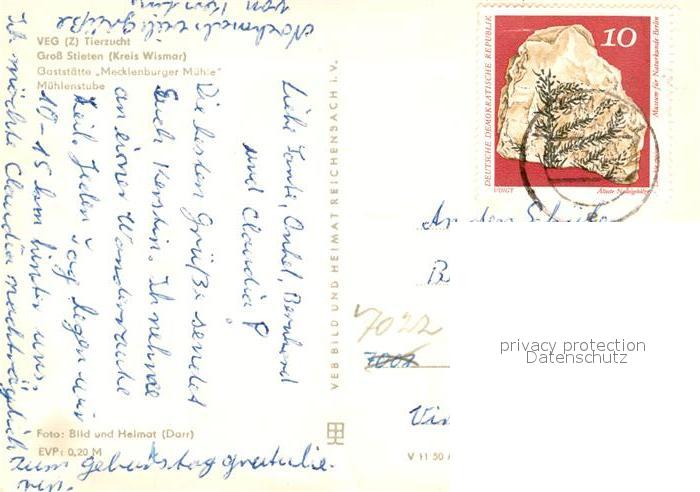 VEG (Z) Tierzucht
Groß Stieten (Kreis Wismar)
Gaststätte „Mecklenburger Mühle"
Mühlenstube
Liebe Tante, Onkel, Bernhard
und Claudia!
Die besten Grüße sendet
Euch Kerstin. Ich nehme
an einer Wanderrauhe
teil. Jeden Tag liegen wir
10-15 km hinter uns.
Ich möchte Claudia nachträglich
zum Geburtstag gratulie-
ren.
Nochmals viele Grüße
von Kerstin
Foto: Bild und Heimat (Darr)
EVP: 0,20 M
VEB BILD UND HEIMAT REICHENBACH i. V.
V 11 50
DEUTSCHE DEMOKRATISCHE REPUBLIK
10
Museum für Naturkunde Berlin
VOIGT
Älteste Nadelhölzer
An den
7022
7002
privacy protection
Datenschutz